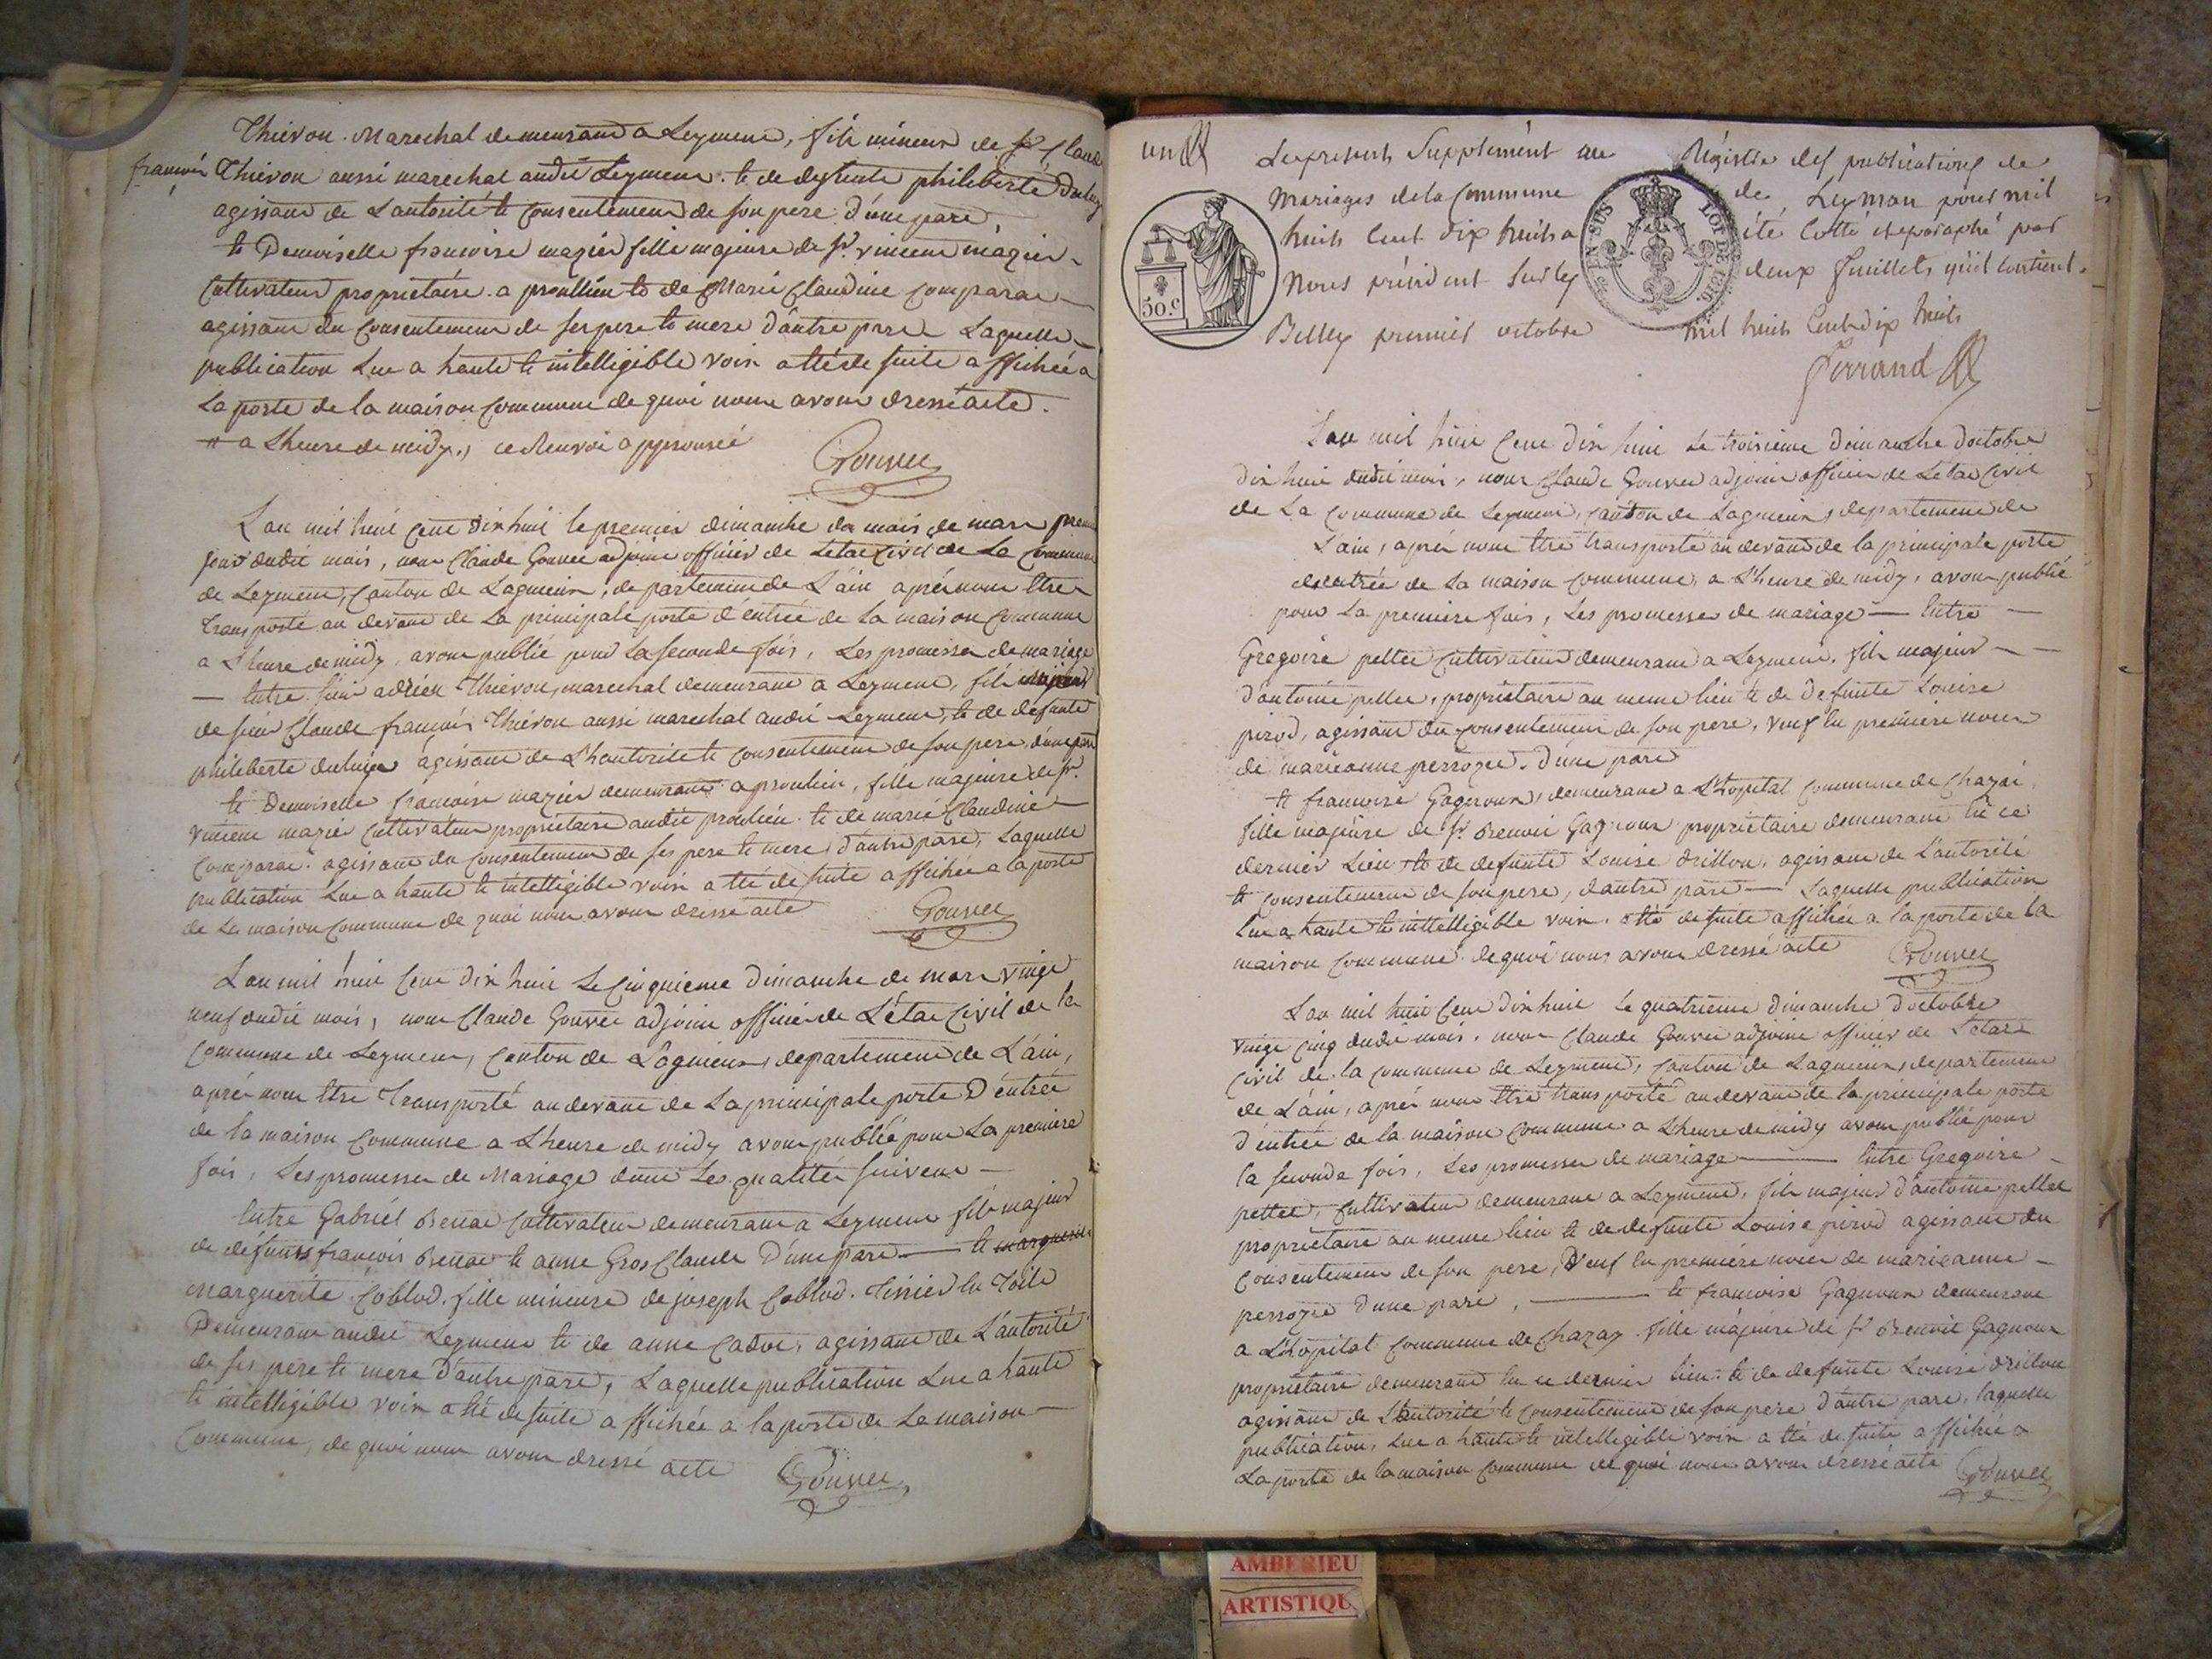 Thievon. Marechal demeurant a Leymene, fils mineur de Sr. Claude
francois Thievon aussi marechal audit Leymene. et de defunte philiberte
agissant de Lautorité et Consentement de son pere d'une part
et Demoiselle francoise mazier fille majeure de Sr. vincent mazier
Cultivateur proprietaire a proullieu et de Marie Claudine Comparat
agissant du Consentement de ses pere et mere d'autre part Laquelle
publication Lue a haute et intelligible voix a été de suite affichée a
La porte de la maison Commune de quoi nous avons dressé acte.
a L'heure de midy, ce Renvoi approuvé
Gouvee
L'an mil huit Cent Dix huit le premier dimanche du mois de mars
jour dudit mois, nous Claude Gouvee adjoint officier de Letat Civil de La Commune
de Leymene, Canton de Lagnieux, departement de L'ain après nous etre
transporté au devant de La principale porte d'entrée de La maison Commune
a L'heure de midy, avons publié pour La seconde fois, Les promesses de mariage
— Entre Adrien Thievon, marechal demeurant a Leymene, fils
de Claude francois Thievon aussi marechal audit Leymene, et de defunte
philiberte agissant de L'hautorité et consentement de son pere, d'une part
et Demoiselle francoise mazier demeurant a proulieu, fille majeure de Sr.
vincent mazier Cultivateur proprietaire audit proulieu et de marie Claudine
Comparat. agissant du Consentement de ses pere et mere d'autre part, Laquelle
publication Lue a haute et intelligible voix a été de suite affichée a la porte
de La maison Commune de quoi nous avons dressé acte
Gouvee
L'an mil huit Cent Dix huit Le Cinquieme Dimanche de mars vingt
neuf dudit mois, nous Claude Gouvee adjoint officier de L'état Civil de la
Commune de Leymene, Canton de Lagnieux, departement de L'ain,
après nous etre Transporté au devant de La principale porte D'entrée
de la maison Commune a L'heure de midy avons publié pour La premiere
fois, Les promesses de Mariage dont Les qualités suivent —
Entre Gabriel Benat Cultivateur demeurant a Leymene fils majeur
de défunts francois Benat et anne Gros Claude D'une part — et marguerite
Marguerite Coblod. fille mineure de joseph Coblod. Tissier En Toile
Demeurant audit Leymene et de anne Cadot, agissant de L'autorité
de ses pere et mere D'autre part, Laquelle publication Lue a haute
et intelligible voix a été de suite affichée a la porte de La maison
Commune, de quoi nous avons dressé acte
Gouvee
un
Le present Supplément au Régistre des publications de
Mariages de la Commune de Leyman pour mil
huit Cent dix huit a été Cotté et paraphé par
Nous président sur les deux feuillets qu'il contient.
Belley premier octobre mil huit Cent dix huit
Ferrand
50.c
EN SUS
LOI DE 1816.
L'an mil huit Cent Dix huit Le troisieme Dimanche D'octobre
Dix huit dudit mois, nous Claude Gouvee adjoint officier de Letat Civil
de La Commune de Leymene, Canton de Lagnieux, departement de
L'ain, après nous etre transporté au devant de la principale porte
d'entrée de La maison Commune, a L'heure de midy, avons publié
pour La premiere fois, Les promesses de mariage — Entre —
Gregoire pellee Cultivateur demeurant a Leymene, fils majeur —
d'antoine pellee, proprietaire au meme lieu et de Defunte Louise
pirod, agissant du consentement de son pere, veuf En premiere noces
de marieanne perrozee. D'une part
et francoise Gagnoux, demeurant a L'hopital Commune de Chazai
fille majeure de Sr. Benoit Gagnoux proprietaire demeurant En ce
dernier Lieu et de defunte Louise drillon, agissant de L'autorité
et Consentement de son pere, d'autre part — Laquelle publication
Lue a haute et intelligible voix. a été de suite affichée a la porte de La
maison Commune. de quoi nous avons dressé acte
Gouvee
L'an mil huit Cent Dix huit Le quatrieme dimanche D'octobre
vingt Cinq dudit mois. nous Claude Gouvee adjoint officier de L'etat
Civil de la Commune de Leymene, Canton de Lagnieux, departement
de L'ain, après nous etre transporté au devant de la principale porte
d'entrée de la maison Commune a L'heure de midy avons publié pour
la seconde fois, Les promesses de mariage — Entre Gregoire
pellee, Cultivateur demeurant a Leymene, fils majeur d'antoine pellee
proprietaire au meme lieu et de defunte Louise pirod agissant du
Consentement de son pere, Veuf En premiere noces de marieanne
perrozee d'une part, — et francoise Gagnoux demeurant
a L'hopital Commune de Chazay fille majeure de Sr Benoit Gagnoux
proprietaire demeurant En ce dernier lieu. et de defunte Louise drillon
agissant de L'autorité et Consentement de son pere d'autre part, laquelle
publication, Lue a haute et intelligible voix a été de suite affichée a
La porte de la maison Commune de quoi nous avons dressé acte
Gouvee
AMBERIEU
ARTISTIQU